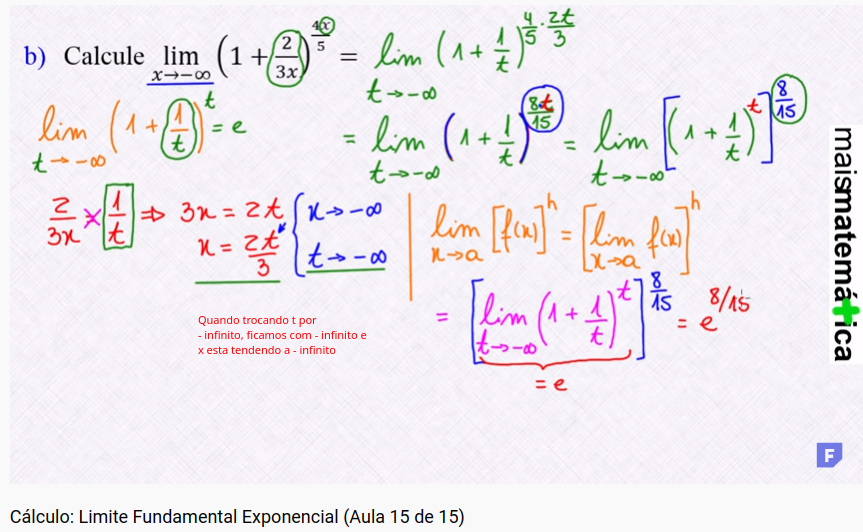 b) Calcule lim x→-∞ (1 + 2/3x)^(4x/5) = lim t→-∞ (1 + 1/t)^(4/5 · 2t/3)
lim t→-∞ (1 + 1/t)^t = e
= lim t→-∞ (1 + 1/t)^(8t/15) = lim t→-∞ [(1 + 1/t)^t]^(8/15)
2/3x × 1/t ⇒ 3x = 2t
x = 2t/3
{ x→-∞
t→-∞
lim x→a [f(x)]^n = [lim x→a f(x)]^n
= [lim t→-∞ (1 + 1/t)^t]^(8/15) = e^(8/15)
= e
Quando trocando t por
- infinito, ficamos com - infinito e
x esta tendendo a - infinito
maismatemá+ica
F
Cálculo: Limite Fundamental Exponencial (Aula 15 de 15)